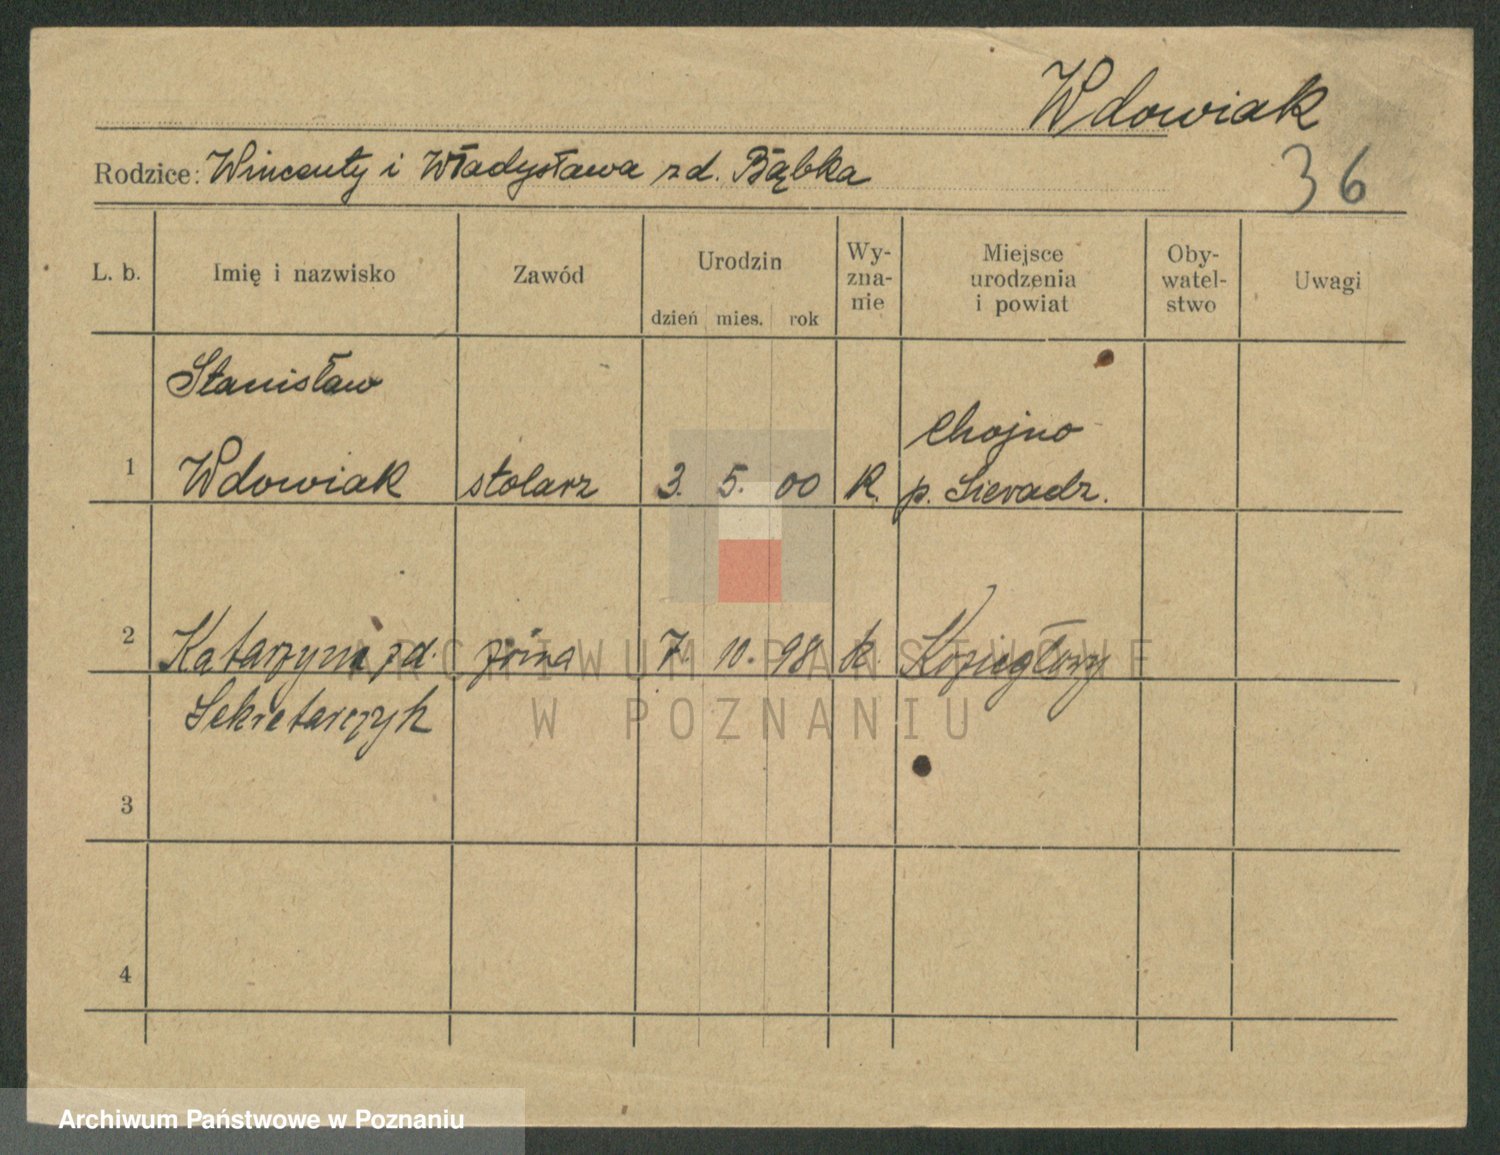 Wdowiak
Rodzice: Wincenty i Władysława zd. Bąbka
36
L. b.
Imię i nazwisko
Zawód
Urodzin
dzień mies. rok
Wy-
zna-
nie
Miejsce
urodzenia
i powiat
Oby-
watel-
stwo
Uwagi
Stanisław
Chojno
1 Wdowiak stolarz 3. 5. 00 k. p. Sieradz.
2 Katarzyna zd. żona 7. 10. 98 k. Koziegłowy
Sekretarczyk
3
4
ARCHIWUM PAŃSTWOWE
W POZNANIU
Archiwum Państwowe w Poznaniu